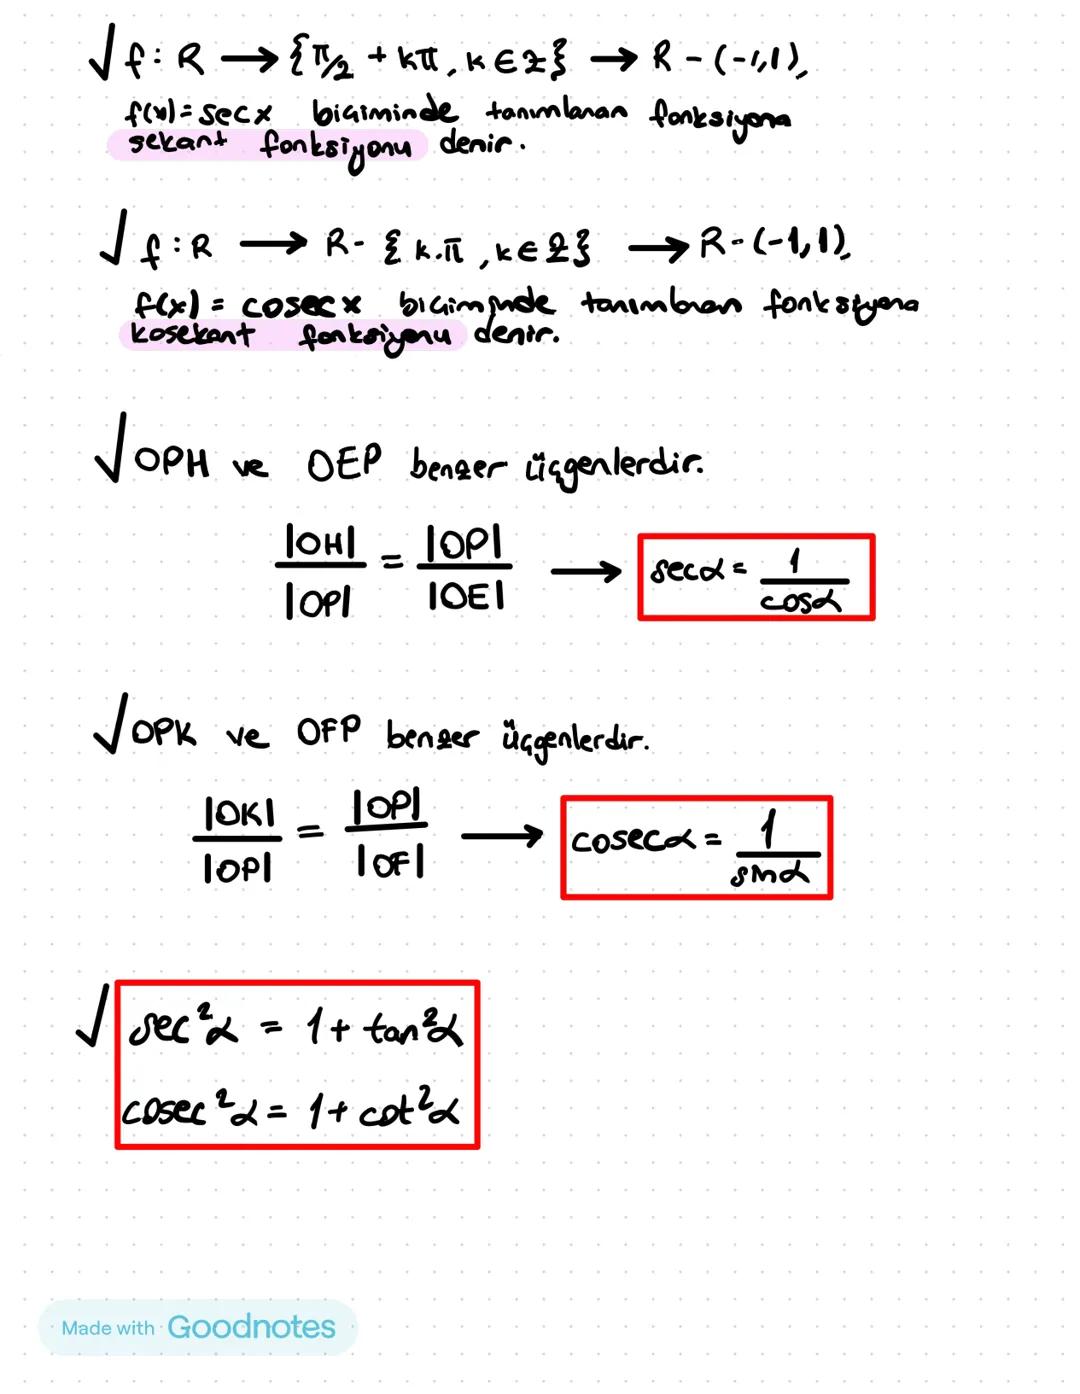 √ f: R → {π/2 + kπ, k ∈ z} → R - (-1,1),
f(x) = sec x biçiminde tanımlanan fonksiyona
sekant fonksiyonu denir.
√ f: R → R- { k.π , k ∈ Z} → R-(-1,1),
f(x) = cosec x biçiminde tanımlanan fonksiyona
kosekant fonksiyonu denir.
√ OPH ve OEP benzer üçgenlerdir.
|OH| / |OP| = |OP| / |OE| → secα = 1 / cosα
√ OPK ve OFP benzer üçgenlerdir.
|OK| / |OP| = |OP| / |OF| → cosecα = 1 / sinα
√ sec²α = 1 + tan²α
cosec²α = 1 + cot²α
Made with Goodnotes